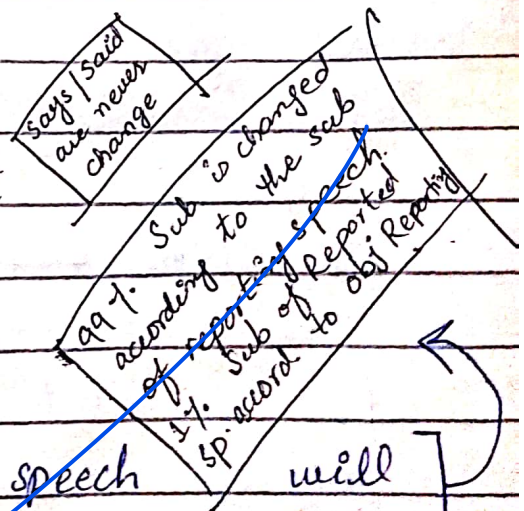 says/said
are never
change
99%. Sub is changed
according to the sub
of reporting speech.
1%. Sub of Reported
sp. accord to obj Reporting
speech will